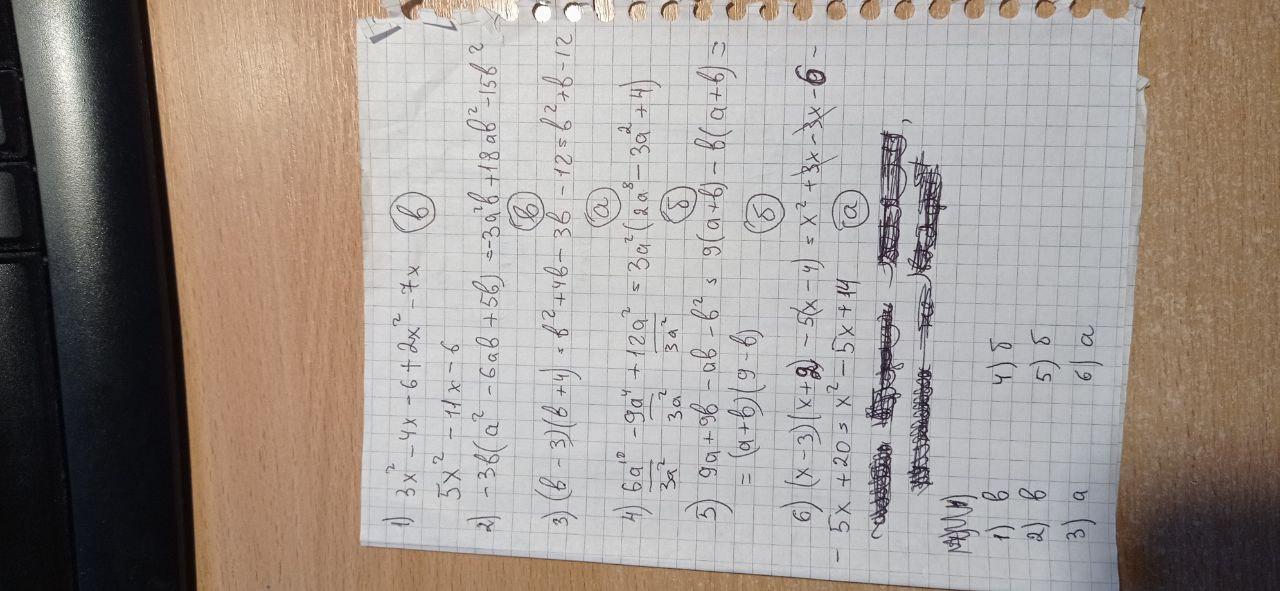 1) 3x² - 4x - 6 + 2x² - 7x (в)
5x² - 11x - 6
2) -3в(a² - 6aв + 5в) = -3a²в + 18aв² - 15в² (в)
3) (в - 3)(в + 4) = в² + 4в - 3в - 12 = в² + в - 12 (а)
4) 6a¹⁰ - 9a⁴ + 12a² = 3a²(2a⁸ - 3a² + 4) (б)
3a² 3a² 3a²
5) 9a + 9в - aв - в² = 9(a + в) - в(a + в) =
= (a + в)(9 - в) (б)
6) (x - 3)(x + 2) - 5(x - 4) = x² + 3x - 3x - 6 -
- 5x + 20 = x² - 5x + 14 (а)
1) в 4) б
2) в 5) б
3) а 6) а